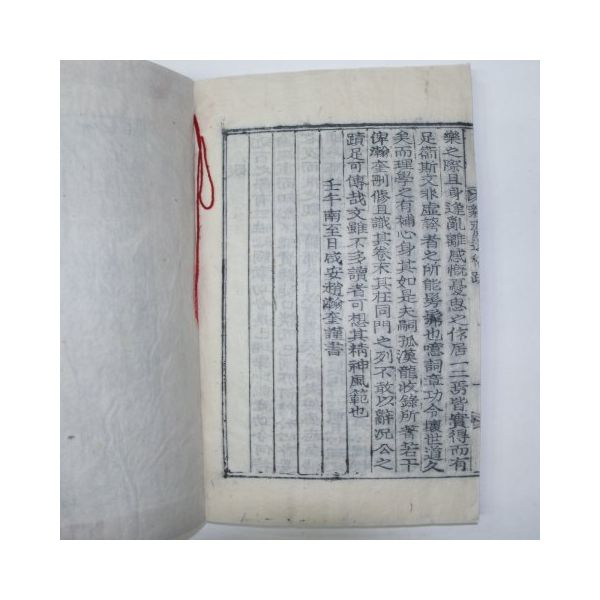 樂之際且身逢亂離感慨憂思之作居一二焉皆實得而有
足衛斯文非虛夸者之所能髣髴也噫詞章功令壞世道久
矣而理學之有補心身其如是夫嗣孤漢龍收錄所著若干
俾瀚奎刪修且識其卷末其在同門之列不敢以辭況公之
蹟足可傳哉文雖不多讀者可想其精神風範也
壬午南至日咸安趙瀚奎謹書